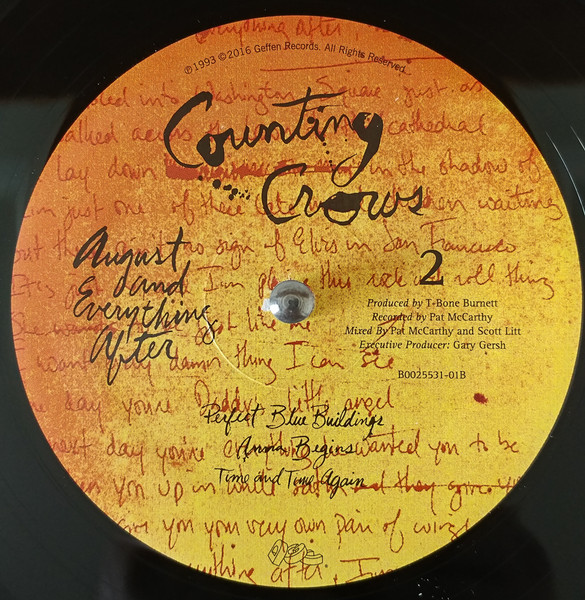 Everything After,
℗1993 ©2016 Geffen Records. All Rights Reserved.
into Washington Square just as
walked across the cathedral
lay down in the shadow of
I'm just one of these waiting
Counting
Crows
out the sign of Elvis in San Francisco
this rock and roll thing
August
and
Everything
After
2
Produced by T-Bone Burnett
Recorded by Pat McCarthy
Mixed By Pat McCarthy and Scott Litt
Executive Producer: Gary Gersh
B0025531-01B
like me
damn thing I can see
day you're Daddy's little angel
Perfect Blue Buildings
next day you're wanted you to be
Anna Begins
Time and Time Again
you up in white satin and they give
give you your very own pair of wings
after, I'm